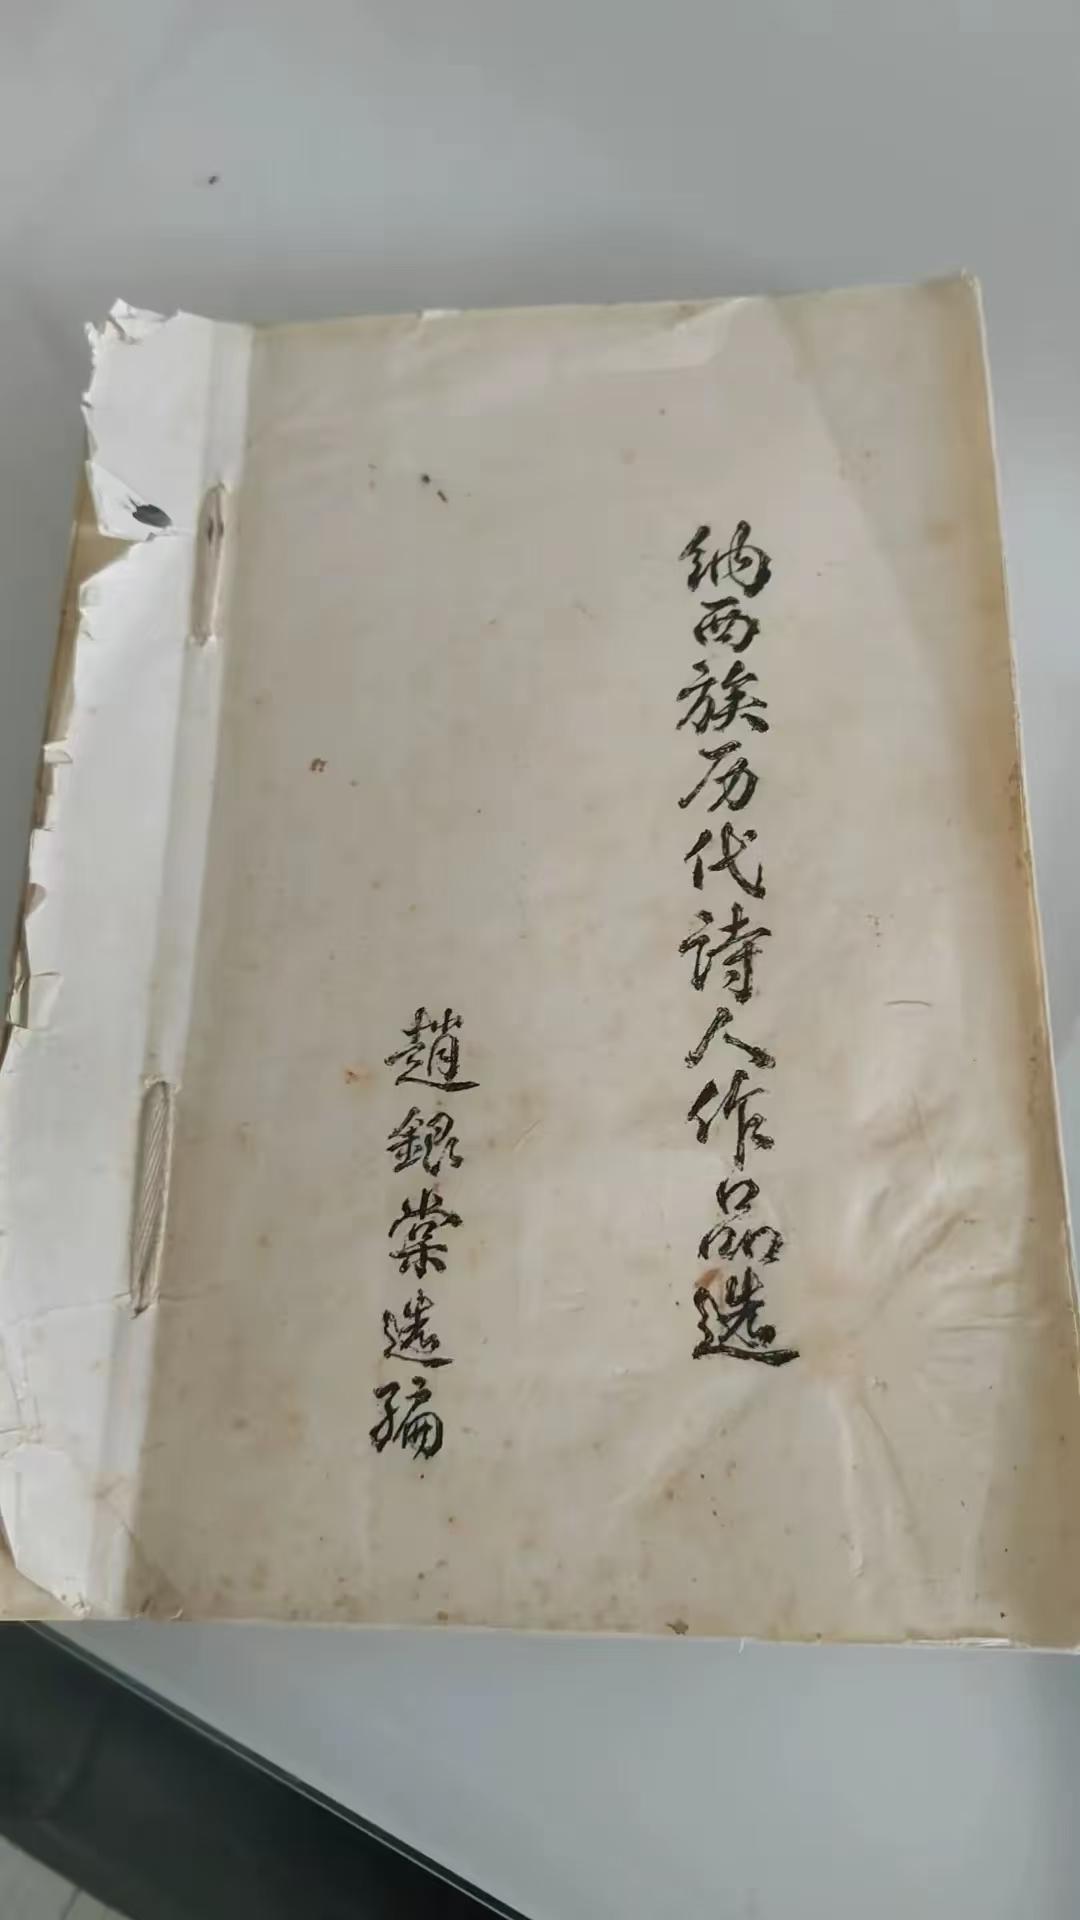 纳西族历代诗人作品选
趙銀棠选编